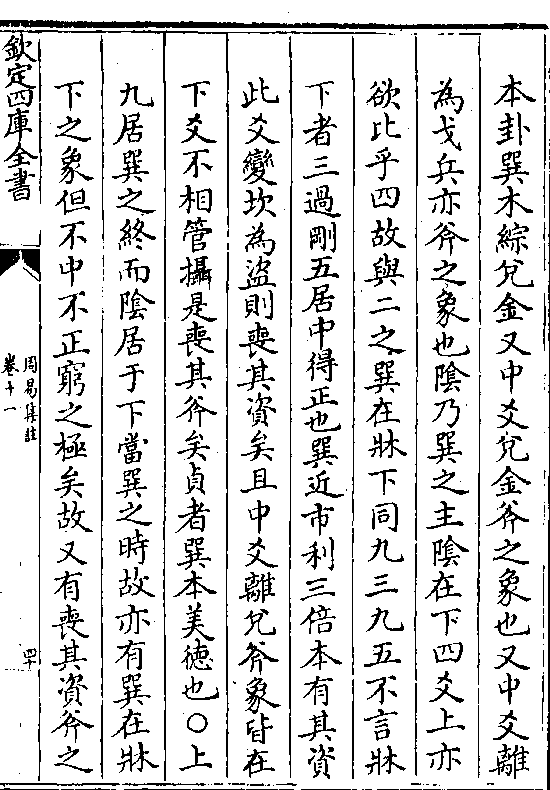 本卦巽木綜兌金又中爻兌金斧之象也又中爻離
為戈兵亦斧之象也陰乃巽之主陰在下四爻上亦
欲比乎四故與二之巽在牀下同九三九五不言牀
下者三過剛五居中得正也巽近市利三倍本有其資
此爻變坎為盜則喪其資矣且中爻離兌斧象皆在
下爻不相管攝是喪其斧矣貞者巽本美德也○上
九居巽之終而陰居于下當巽之時故亦有巽在牀
下之象但不中不正窮之極矣故又有喪其資斧之
欽定四庫全書
周易集註
卷十一
四十